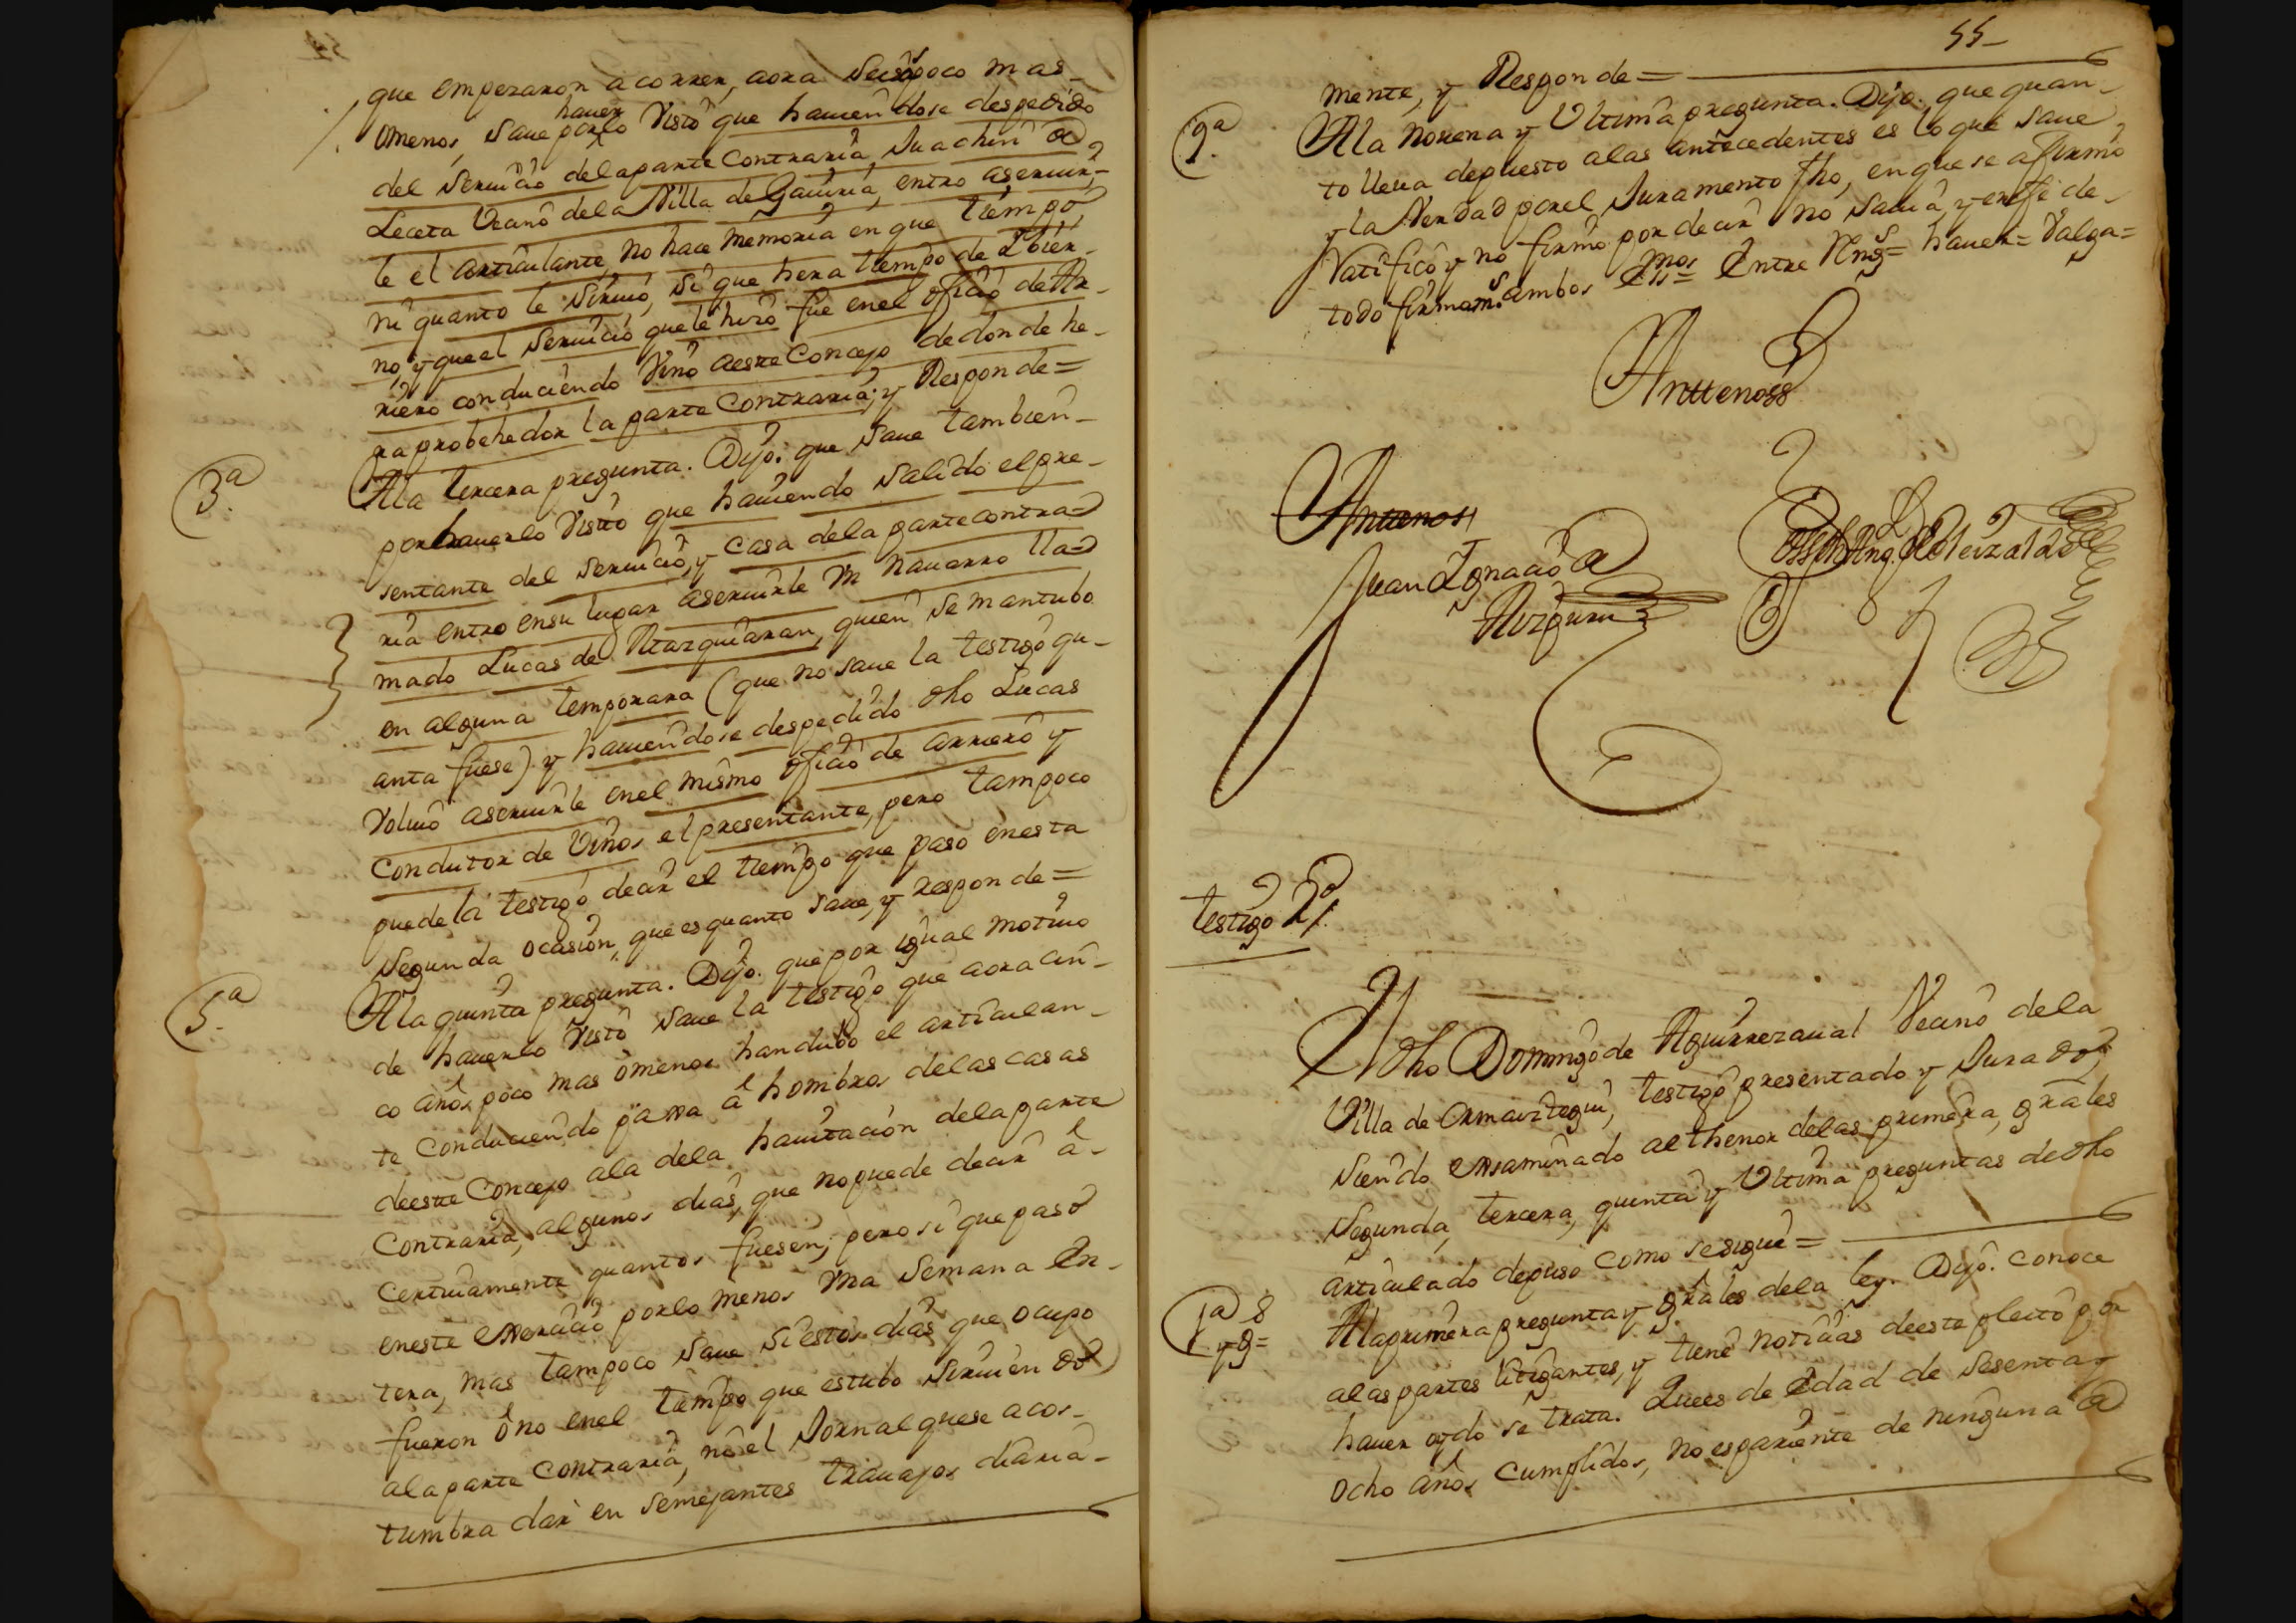 que empezaron a correr, aora seis poco mas
haver
omenos, Save porlo Visto que haviendose despedido
del servicio dela parte Contraria, Juachin de
Leceta Vecino dela Villa de Gaviria, entro aservir-
le el articulante no hace memoria en que tiempo,
ni quanto le Sirvió, si que hera tiempo de Ibier-
no, y que el servicio que le hizo fue enel oficio de Ar-
riero conduciendo Vino aeste Concejo dedonde he-
ra probehedor la parte Contraria; y Responde=
3ª
Ala tercera pregunta. Dijo: que save tambien
porhaverlo Visto que haviendo salido el pre-
sentante del servicio, y casa dela parte contra-
ria entro ensu lugar aservirle Vn Navarro lla-
mado Lucas de Atazquiaran, quien se mantubo
en alguna temporara (que no save la testigo qu-
anta fuese) y haviendose despedido dho Lucas
Volvio aservirle enel mismo oficio de arriero y
Condutor de Vinos el presentante, pero tampoco
puede la testigo decir el tiempo que paso enesta
segunda ocasion, que es quanto save, y responde=
5ª
Ala quinta pregunta. Dijo: que por igual motivo
de haverlo Visto save la testigo que aora cin-
co años poco mas ómenos handubo el articulan-
te Conduciendo passa á hombros delas casas
deeste Concejo ala dela havitacion dela parte
Contraria, algunos dias, que nopuede decir á-
certivamente quantos fuesen; pero si que pasó
eneste exercicio porlo menos Vna semana En-
tera, mas tampoco save si estos dias que ocupo
fueron óno enel tiempo que estubo sirviendo
ala parte Contraria, nó el Jornal quese acos-
tumbra dar en semejantes travajos diaria-
55
mente, y Responde=
9ª
Ala novena y Vltima pregunta. Dijo: que quan-
to lleva depuesto alas antecedentes es lo que save
y la Verdad porel Juramento fho, en que se afirmó
Ratificó y no firmó por decir no savia y enfe de
todo firmamos ambos Essnos= Entre Rengs= haver= Valga=
Anttenoss
Anttenoss
Juan Ignacio de
Aizpuru
testigo 2º
El dho Domingo de Aguirrezaval Vecino dela
Villa de Ormaiztegui, testigo presentado y Jurado
siendo exsaminado al thenor delas primera, grales
segunda, tercera, quinta y Vltima preguntas de dho
articulado depuso como sesigue=
1ª
y g=
Ala primera pregunta y grales dela ley. Dijo: conoce
alas partes litigantes, y tiene noticias deeste pleito por
haver oydo se trata. Quees de edad de sesenta y
ocho años cumplidos, no espariente de ninguna de